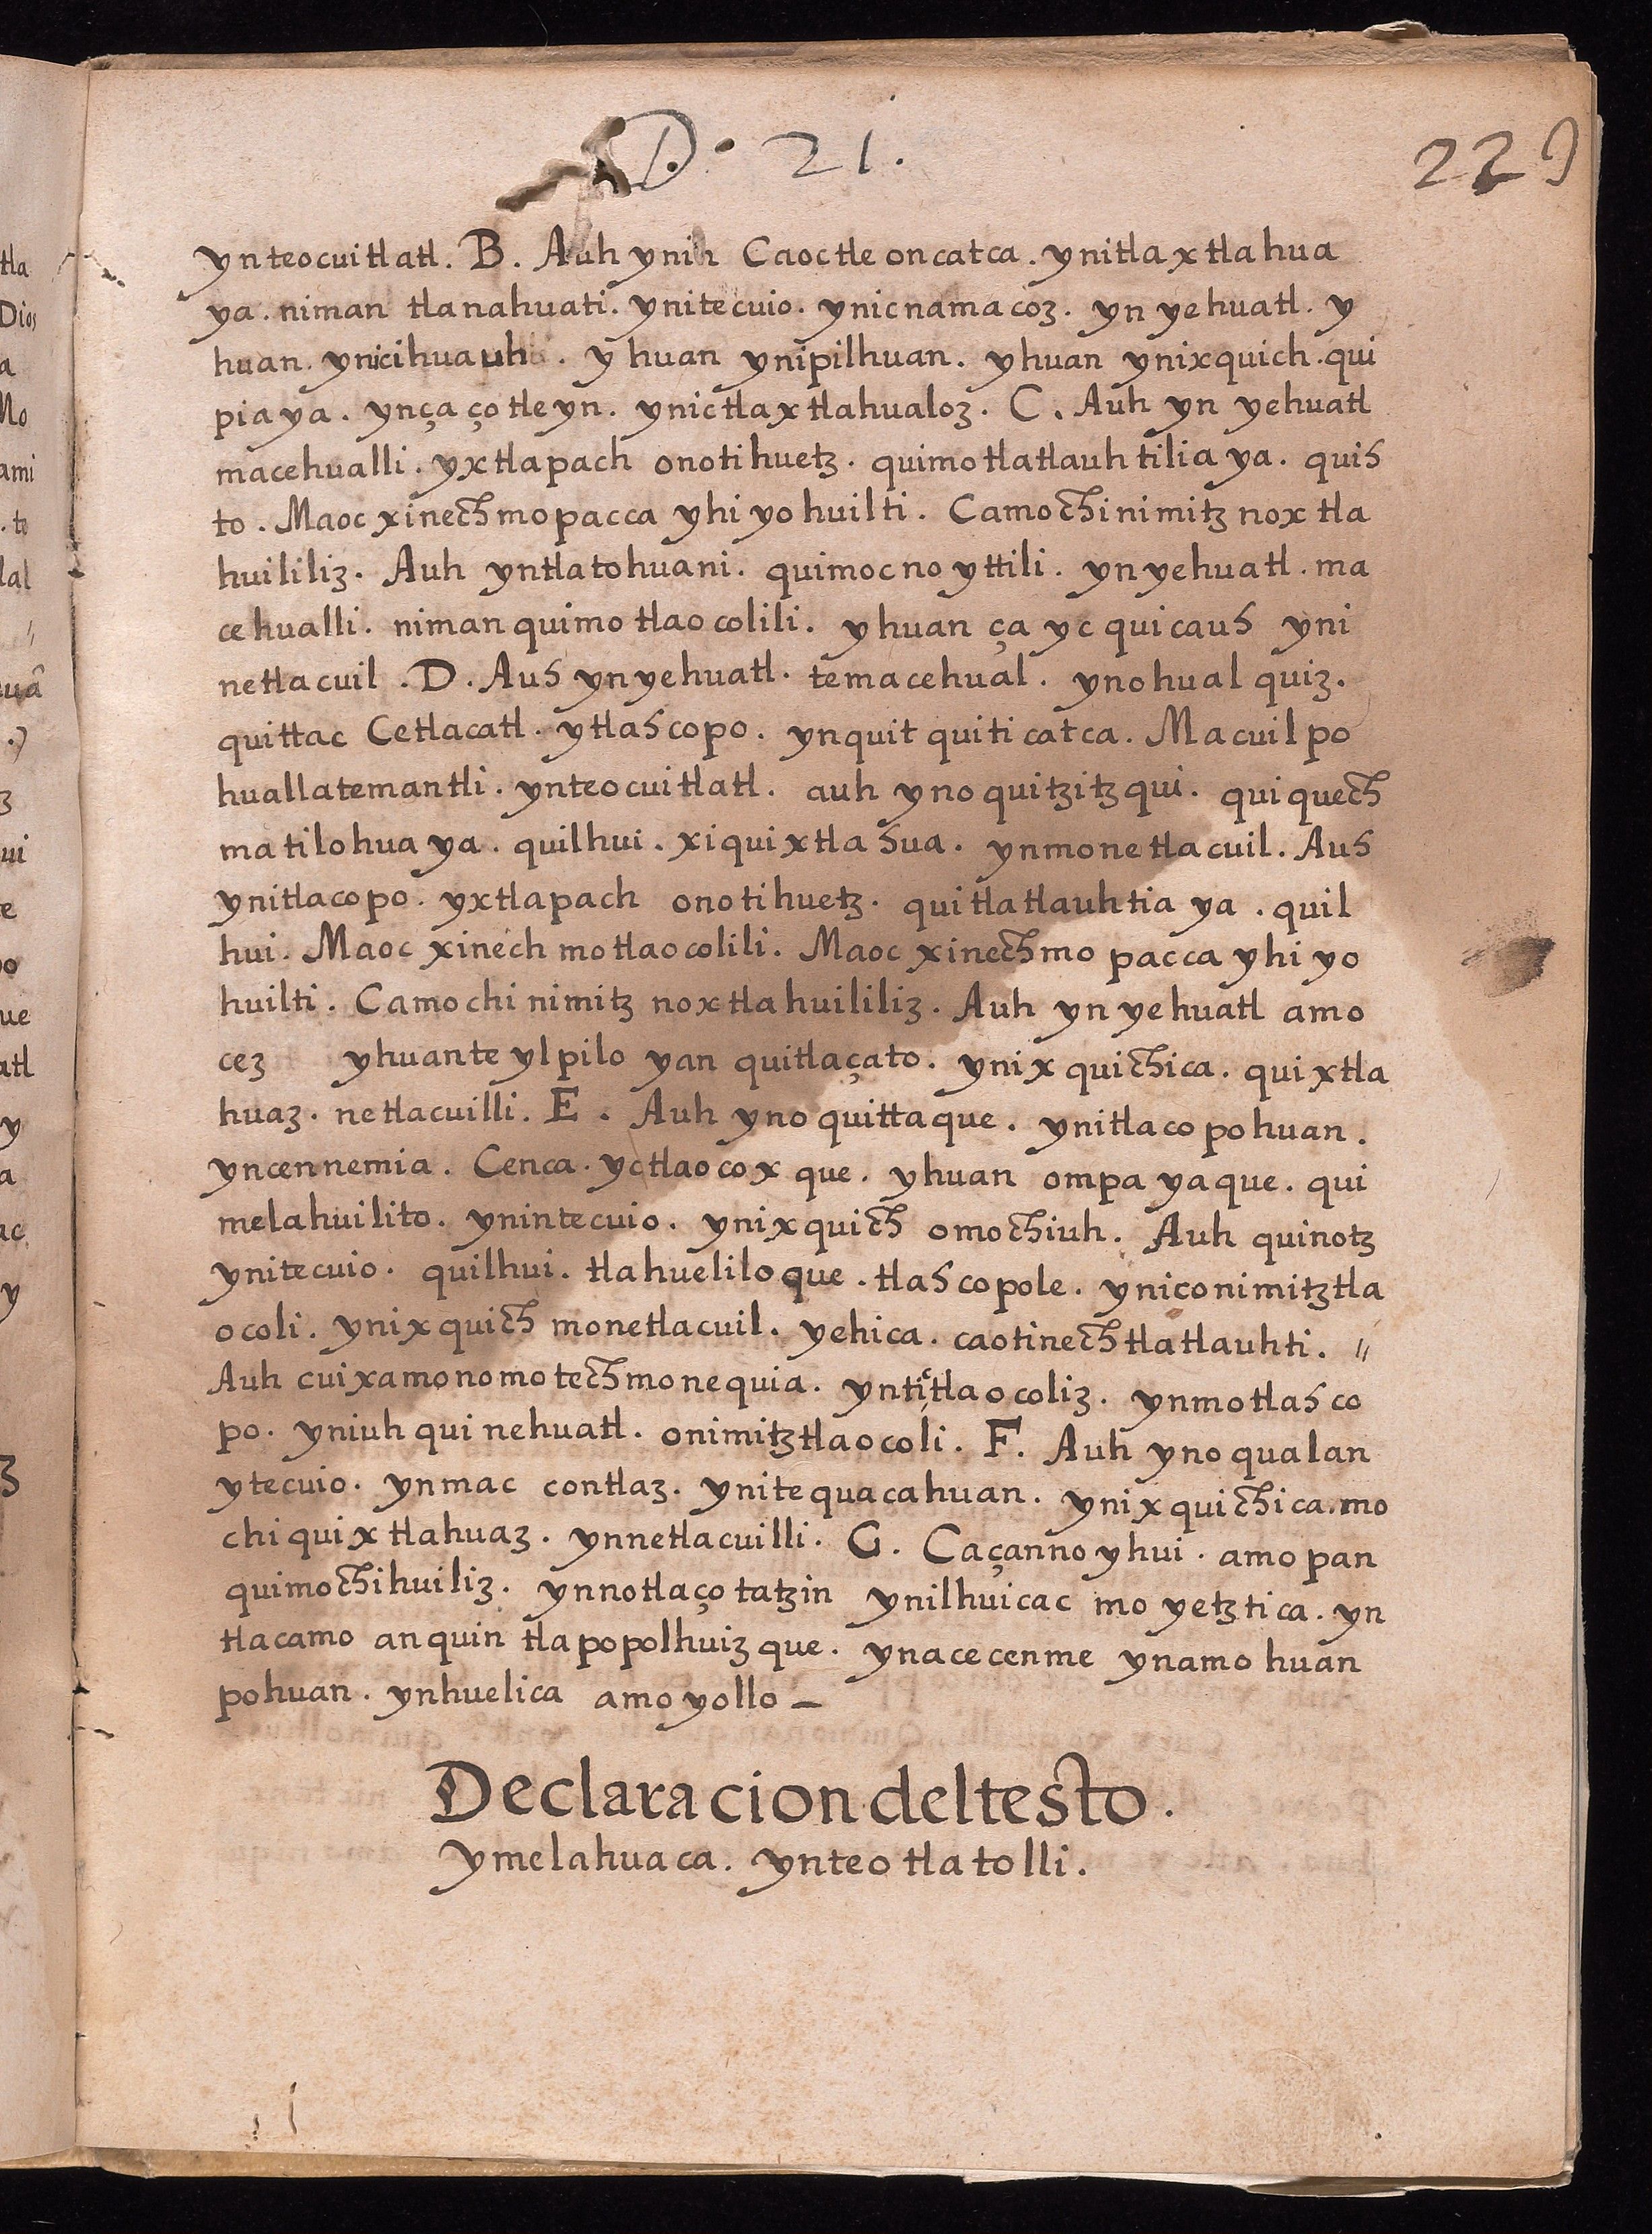 D. 21.
229
ynteocuitlatl. B. Auh ynih Caoctle oncatca. ynitlaxtlahua
ya. niman tlanahuati. ynitecuio. ynicnamacoz. yn yehuatl. y
huan. ynicihuauh. y huan ynipilhuan. yhuan ynixquich. qui
piaya. ynçaçotleyn. ynictlaxtlahualoz. C. Auh yn yehuatl
macehualli. yxtlapach onotihuetz. quimotlatlauhtiliaya. quis
to. Maoc xinechmopacca yhiyohuilti. Camochinimitz noxtla
huililiz. Auh yntlatohuani. quimocnoyttili. ynyehuatl. ma
cehualli. niman quimotlaocolili. yhuan ça yc quicaus yni
netlacuil. D. Aus ynyehuatl. temacehual. ynohualquiz.
quittac Cetlacatl. ytlascopo. ynquitquiticatca. Macuilpo
huallatemantli. ynteocuitlatl. auh ynoquitzitzqui. quiquech
matilohuaya. quilhui. xiquixtlasua. ynmonetlacuil. Aus
ynitlacopo. yxtlapach onotihuetz. quitlatlauhtiaya. quil
hui. Maoc xinech motlaocolili. Maoc xinechmo pacca yhiyo
huilti. Camochi nimitz noxtlahuililiz. Auh yn yehuatl amo
cez yhuan teylpiloyan quitlaçato. ynixquichica. quixtla
huaz. netlacuilli. E. Auh ynoquittaque. ynitlacopohuan.
yncennemia. Cenca. yctlaocoxque. yhuan ompa yaque. qui
melahuilito. ynintecuio. ynixquich omochiuh. Auh quinotz
ynitecuio. quilhui. tlahueliloque. tlascopole. yniconimitztla
ocoli. ynixquich monetlacuil. yehica. caotinechtlatlauhti. //
Auh cuixamonomotechmonequia. yntictlaocoliz. ynmotlasco
po. yniuhqui nehuatl. onimitztlaocoli. F. Auh ynoqualan
ytecuio. ynmac contlaz. ynitequacahuan. ynixquichica. mo
chi quixtlahuaz. ynnetlacuilli. G. Caçannoyhui. amopan
quimochihuiliz. ynnotlaçotatzin ynilhuicac moyetztica. yn
tlacamo anquin tlapopolhuizque. ynacecenme ynamohuan
pohuan. ynhuelica amoyollo –
Declaracion deltesto.
ymelahuaca. ynteotlatolli.